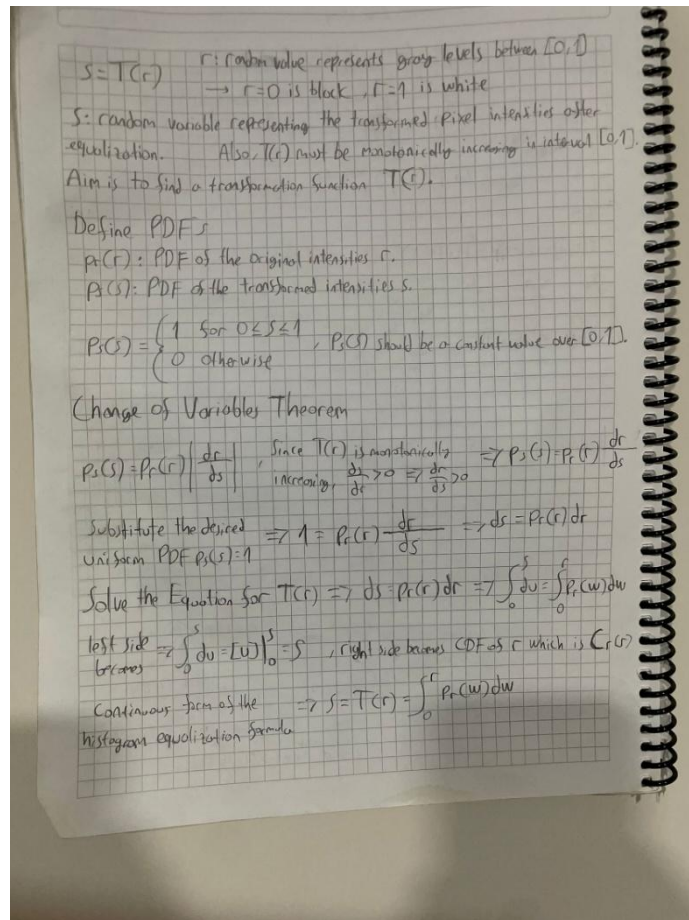 S=T(r) r: random value represents gray levels between [0,1]
→ r=0 is black, r=1 is white
S: random variable representing the transformed pixel intensities after
equalization. Also, T(r) must be monotonically increasing in interval [0,1].
Aim is to find a transformation function T(r).
Define PDFs
pr(r): PDF of the original intensities r.
Ps(s): PDF of the transformed intensities s.
Ps(s) = { 1 for 0≤s≤1
0 otherwise , Ps(s) should be a constant value over [0,1].
Change of Variables Theorem
ps(s)=pr(r)|dr/ds| , Since T(r) is monotonically
increasing, ds/dr>0 => dr/ds>0 => ps(s)=pr(r) dr/ds
Substitute the desired
uniform PDF ps(s)=1 => 1 = pr(r) dr/ds => ds=pr(r)dr
Solve the Equation for T(r) => ds=pr(r)dr => ∫₀ˢ du = ∫₀ʳ pr(w)dw
left side
becomes => ∫₀ˢ du=[u]|₀ˢ=S , right side becomes CDF of r which is Cr(r)
Continuous form of the
histogram equalization formula => s=T(r)=∫₀ʳ pr(w)dw